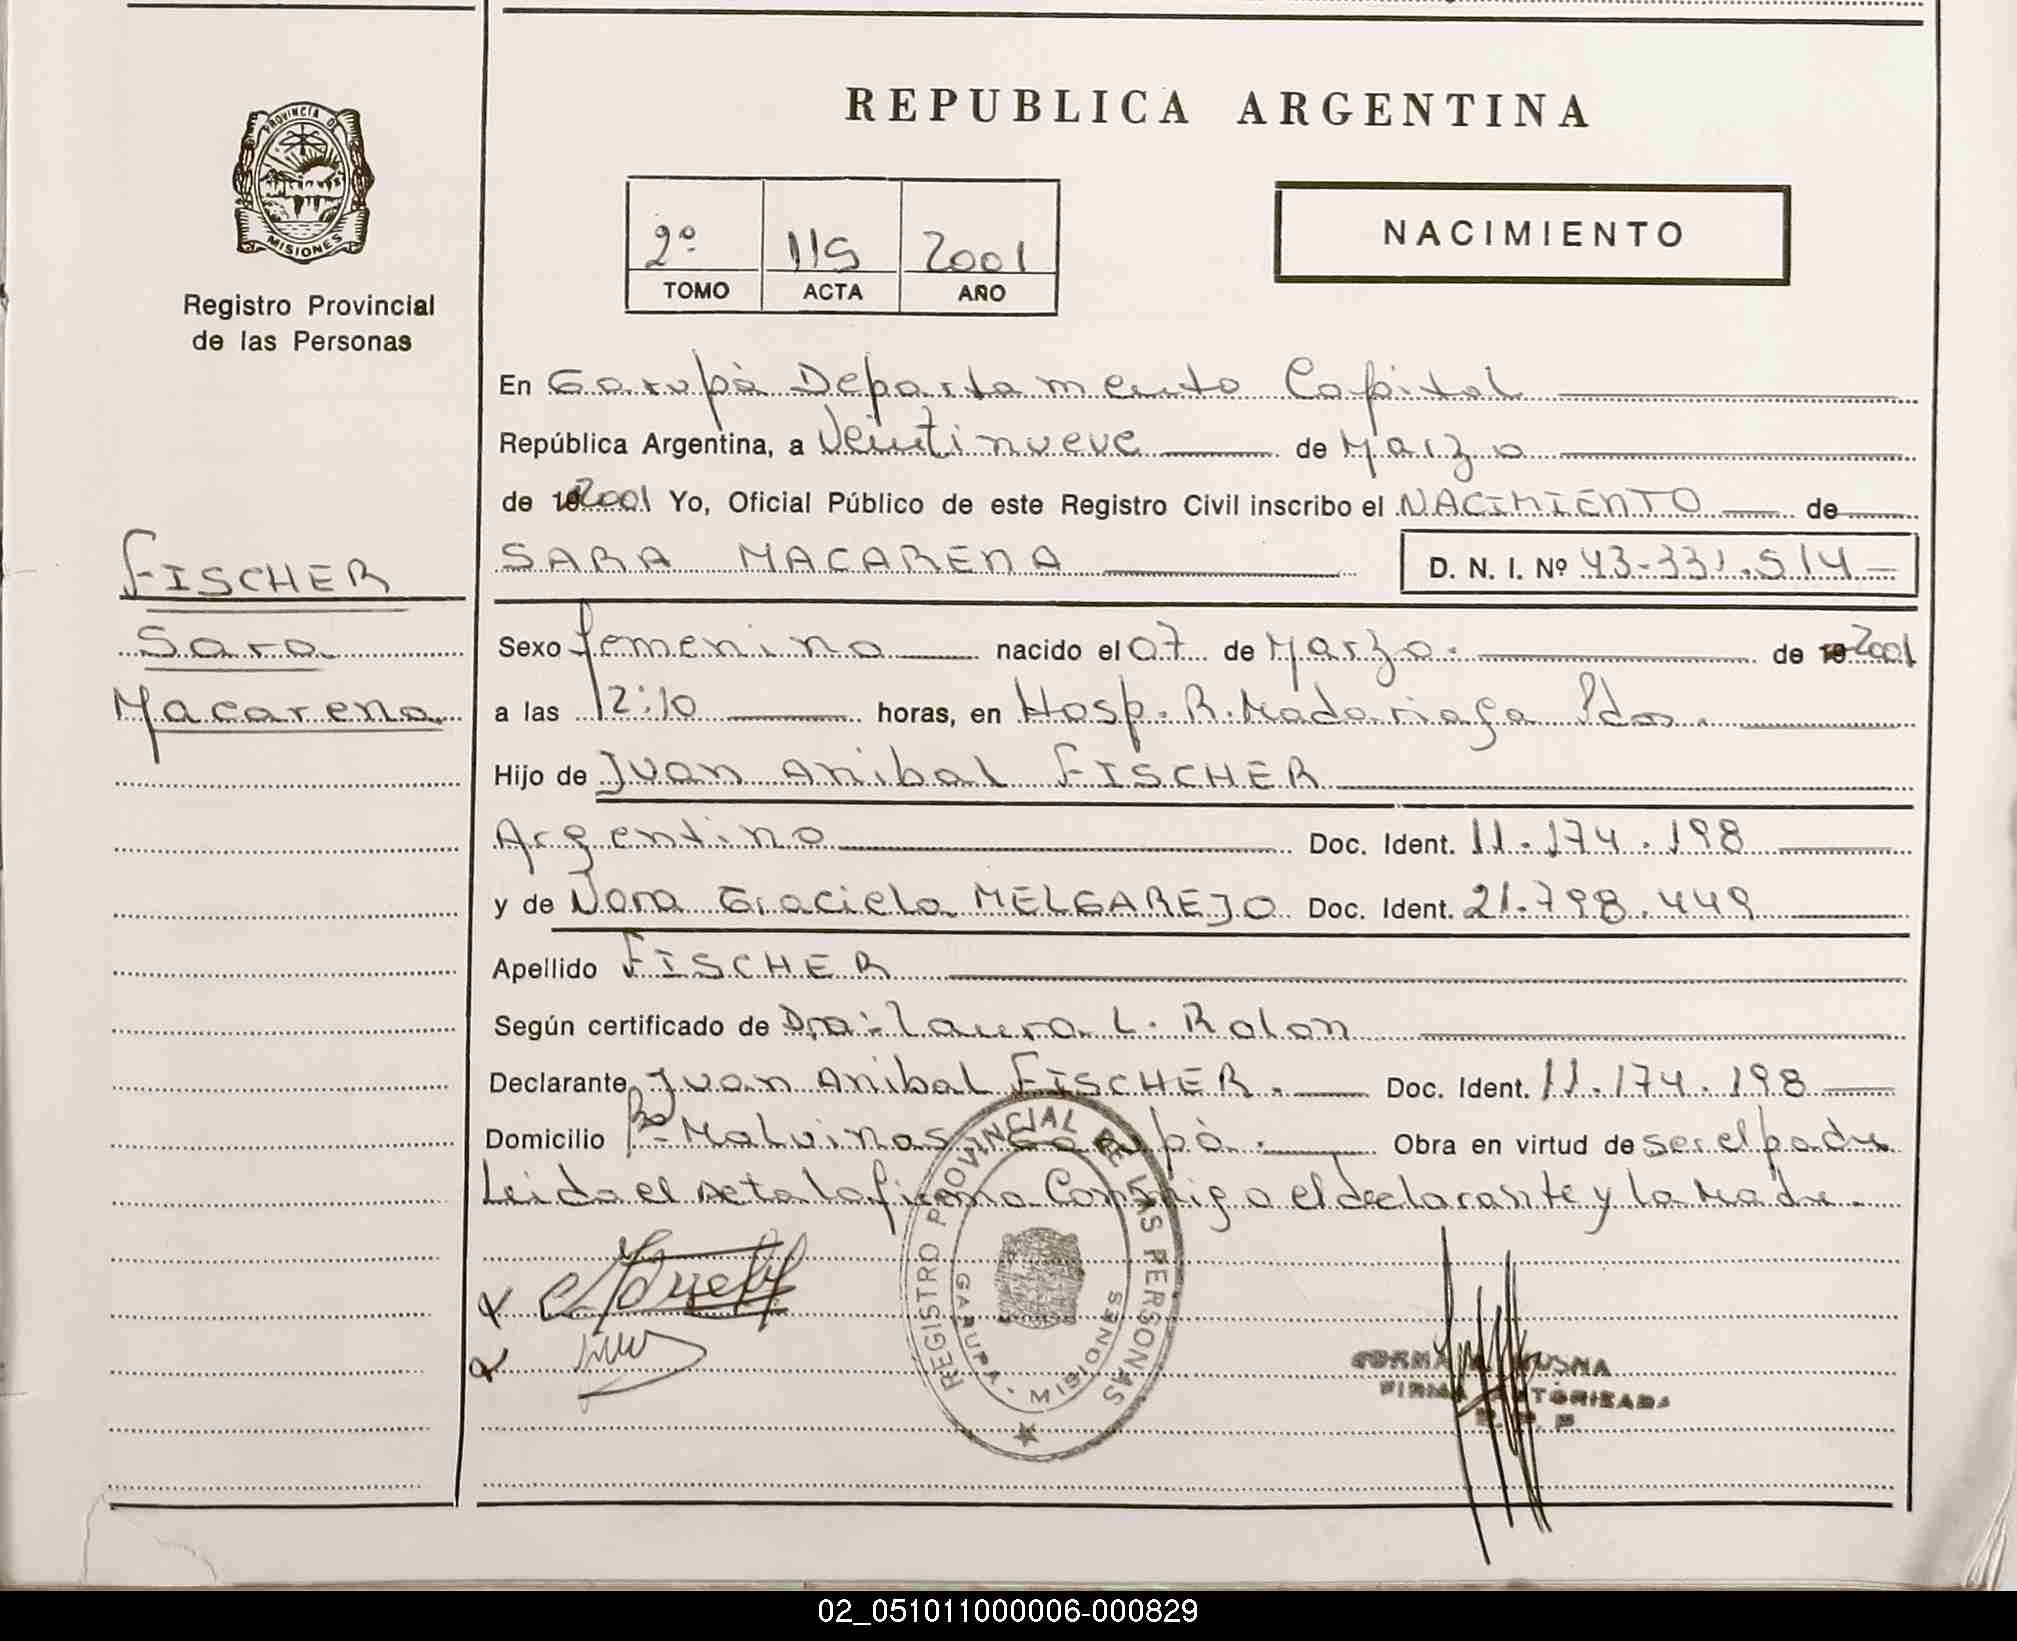 REPUBLICA ARGENTINA
PROVINCIA D
MISIONES
Registro Provincial
de las Personas
2º 115 2001
TOMO ACTA AÑO
NACIMIENTO
En Garupà Departamento Capital
República Argentina, a Veintinueve de Marzo
de 19 2001 Yo, Oficial Público de este Registro Civil inscribo el NACIMIENTO de
SARA MACARENA D. N. I. Nº 43-331.514
FISCHER
Sara
Macarena
Sexo femenino nacido el 07 de Marzo. de 19 2001
a las 12:10 horas, en Hosp. R. Madariaga Pdas.
Hijo de Juan Anibal FISCHER
Argentino Doc. Ident. 11.174.198
y de Nora Graciela MELGAREJO Doc. Ident. 21.798.449
Apellido FISCHER
Según certificado de Dra: Laura L. Rolon
Declarante Juan Anibal FISCHER. Doc. Ident. 11.174.198
Domicilio Bº Malvinas Garupà. Obra en virtud de ser el padre
Leida el Acta la firma Conmigo el declarante y la Madre.
REGISTRO PROVINCIAL DE LAS PERSONAS
GARUPA - MISIONES
FIRMA AUTORIZADA
02_051011000006-000829